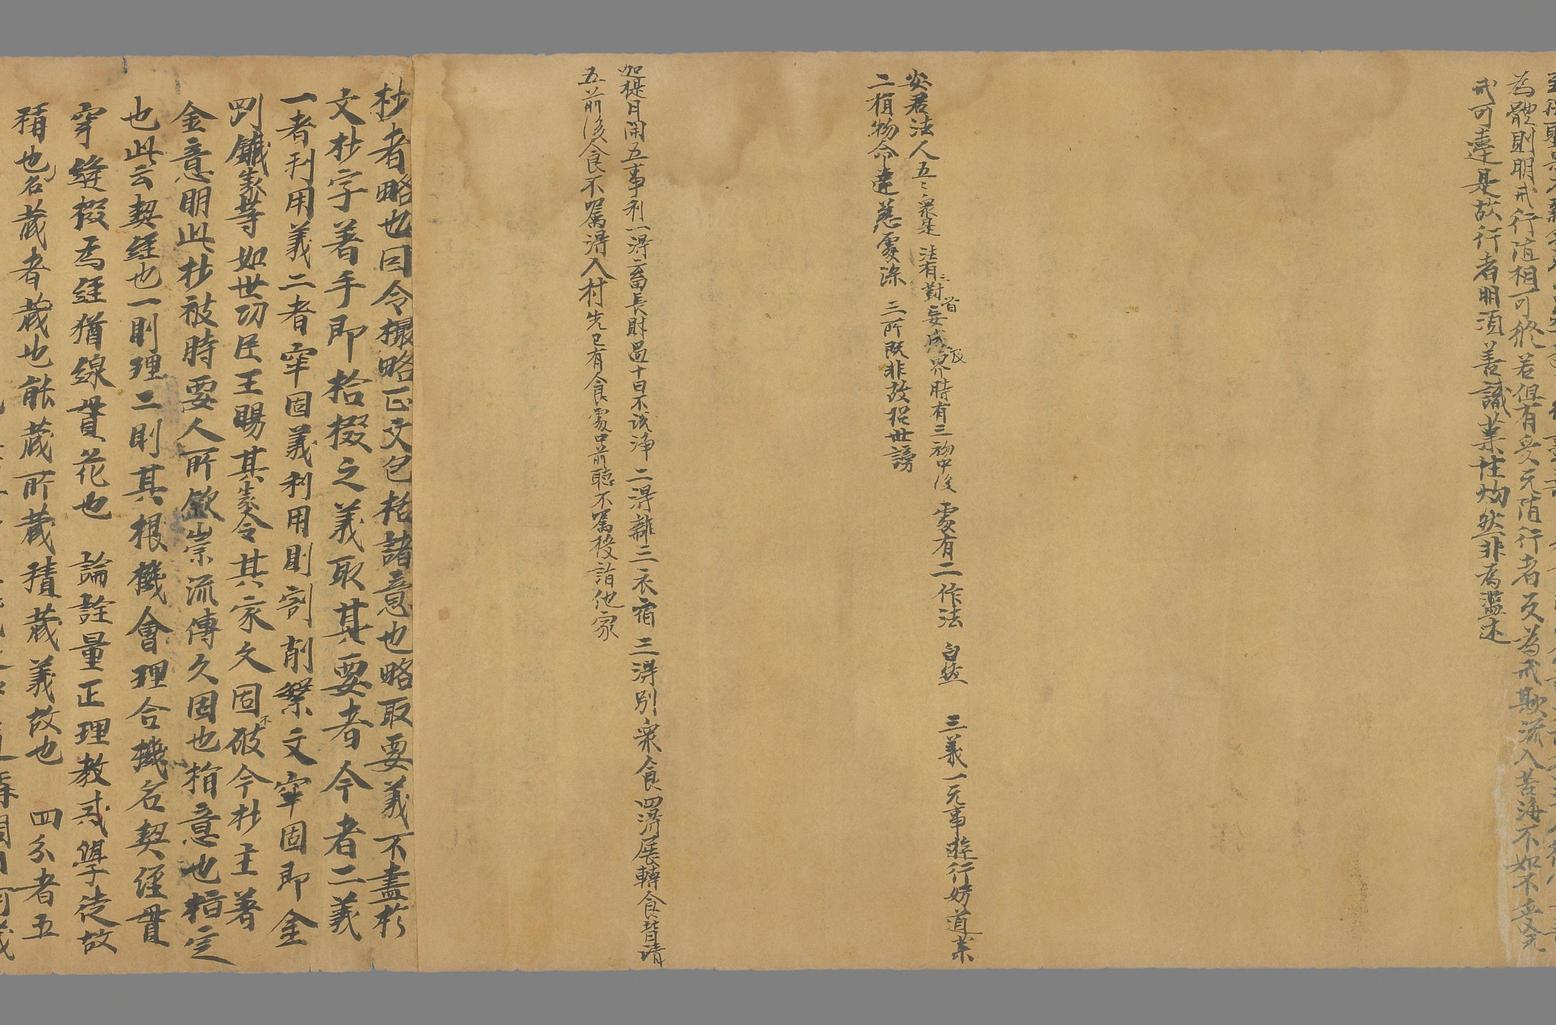 為體則明戒行随相可修若但有受无随行者反為戒欺流入苦海不如不受无
戒可違是故行者明須善識業性灼然非為濫述
安居法人五々衆是 法有二對首妄成界時有三初中後 處有二作法 自然 三義一无事遊行妨道業
二損物命違慈處深 三所既非故招世謗
迦提月開五事利一得畜長財過十日不説淨 二得離三衣宿 三得別衆食 四得展轉食背請
五前後食不囑得入村先已有食處中前聽不囑授詣他家
抄者略也因令撮略正文包括諸意也略取要義不盡於
文抄字著手即拾掇之義取其要者今者二義
一者利用義二者牢固義利用則割削繁文牢固即金
剛鐵券等如世功臣王賜其券令其家文固不破今抄主著
金意明此抄被時要人所欽崇流傳久固也指意也指定
也此云契經也一則理二則其根機會理合機名契經貫
穿縫掇為經猶線貫花也 論詮量正理教戒學徒故
積也名蔵者蔵也能蔵所蔵積蔵義故也 四分者五